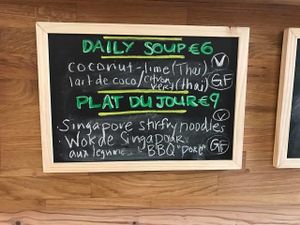 DAILY SOUP €6
coconut-lime (Thai) V
lait de coco/citron vert (thai) GF
PLAT DU JOUR €9
Singapore stirfry noodles V
Wok de Singapour
aux legume BBQ "Pork" GF